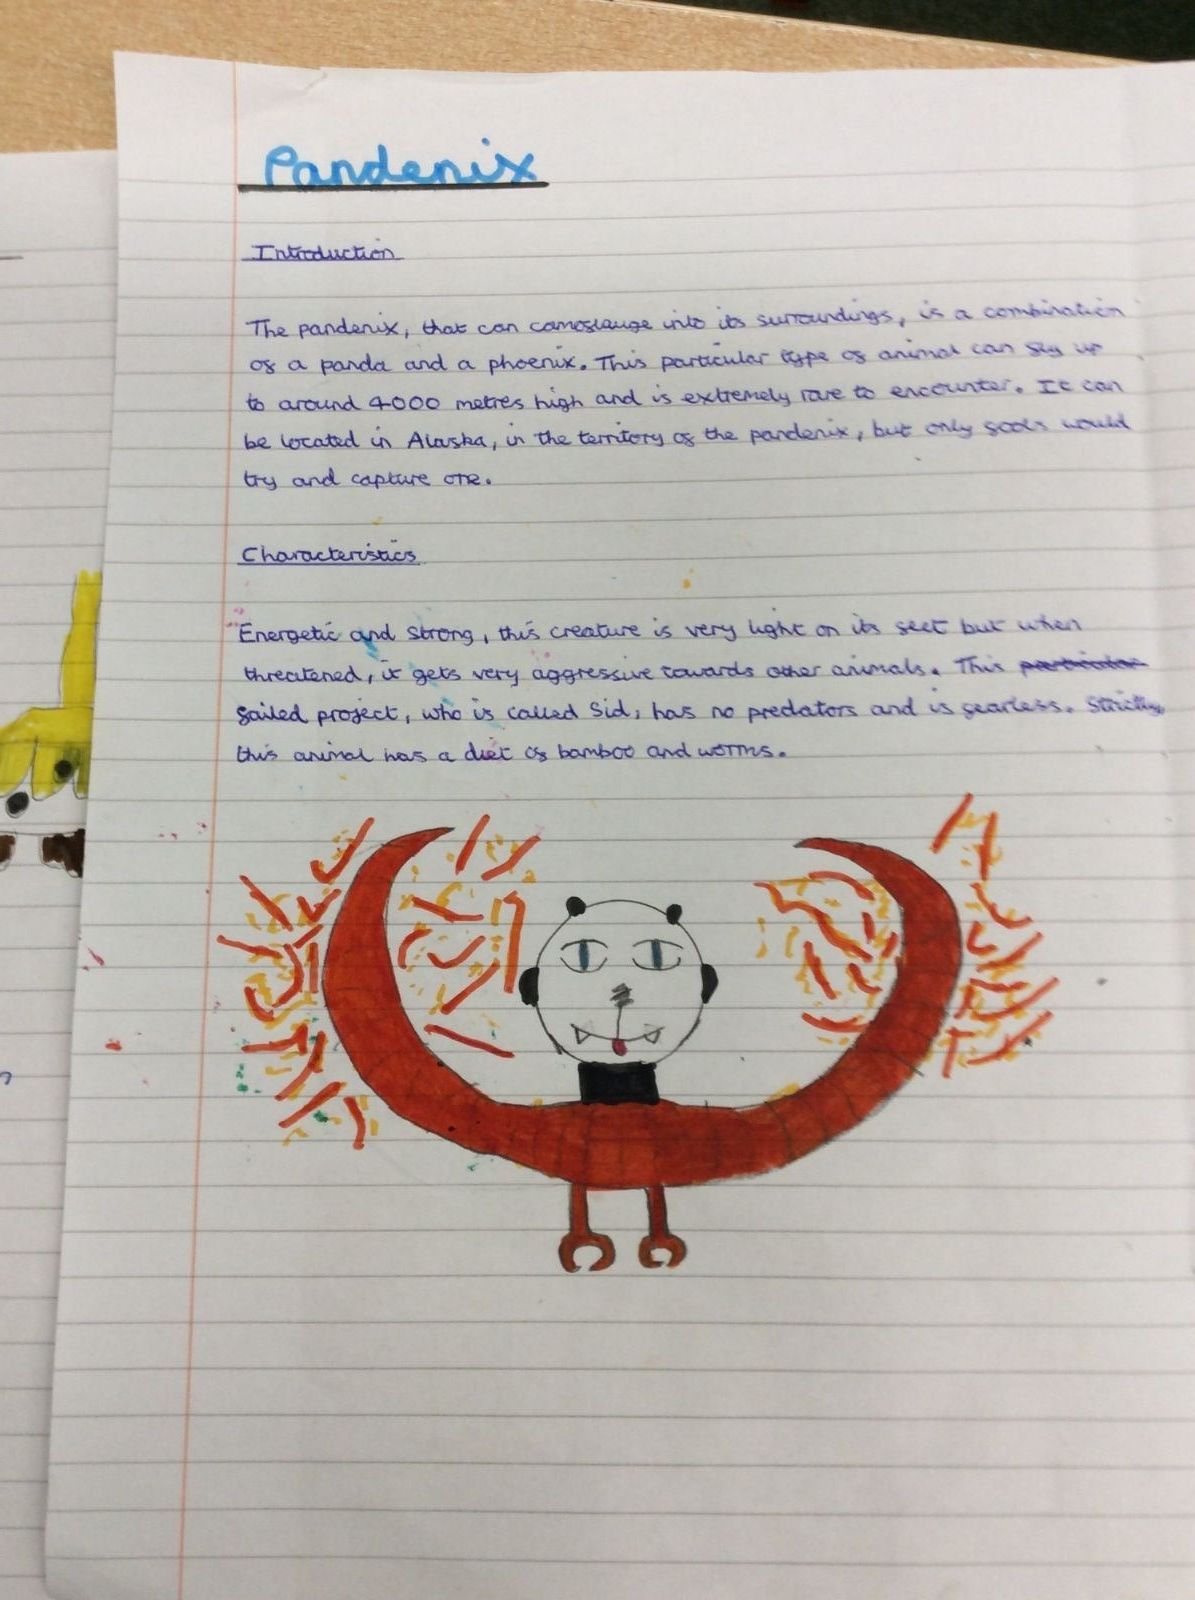 Pandenix
Introduction
The pandenix, that can camoflauge into its surroundings, is a combination
of a panda and a phoenix. This particular type of animal can fly up
to around 4000 metres high and is extremely rare to encounter. It can
be located in Alaska, in the territory of the pandenix, but only fools would
try and capture one.
Characteristics
Energetic and strong, this creature is very light on its feet but when
threatened, it gets very aggressive towards other animals. This particular
failed project, who is called Sid, has no predators and is fearless. Strictly,
this animal has a diet of bamboo and worms.